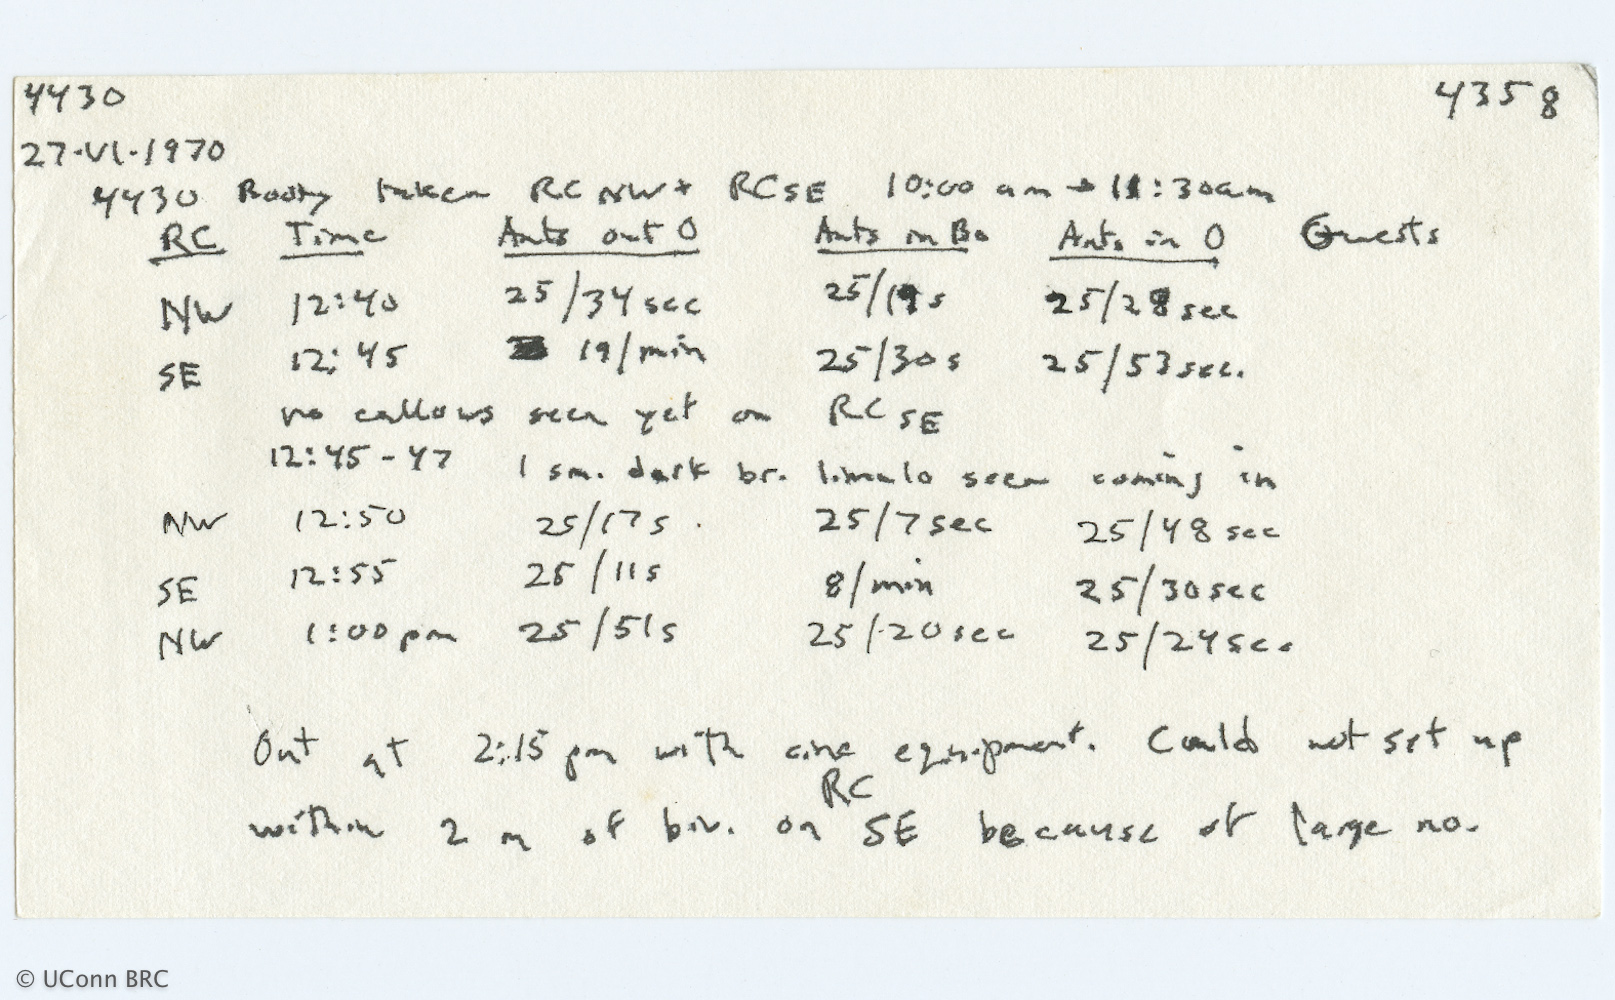 4430 4358
27-VI-1970
4430 Booty taken RC NW + RC SE 10:00 am → 11:30am
RC Time Ants out O Ants in Bo Ants in O Guests
NW 12:40 25/34 sec 25/19 s 25/28 sec
SE 12:45 19/min 25/30 s 25/53 sec.
no callows seen yet on RC SE
12:45-47 1 sm. dark br. limulo seen coming in
NW 12:50 25/17 s. 25/7 sec 25/48 sec
SE 12:55 25/11s 8/min 25/30 sec
NW 1:00 pm 25/51s 25/20 sec 25/24 sec.
Out at 2:15 pm with cine equipment. Could not set up
RC
within 2 m of biv. on SE because of large no.
© UConn BRC